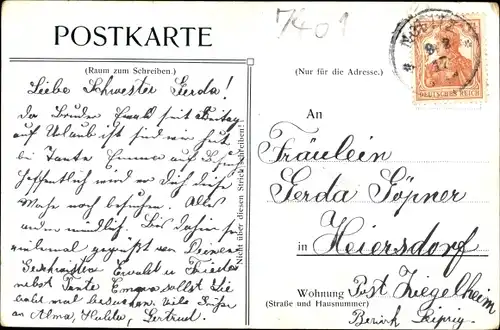 7401
POSTKARTE
(Raum zum Schreiben.)
Liebe Schwester Gerda!
Da Bruder Ewald seit Freitag
auf Urlaub ist sind wir heut
bei Tante Emma auf Besuch
Hoffentlich wird er Dich diese
noch besuchen. Alles
andere mündlich. Bis dahin sei
einmal gegrüßt von Deinen
Geschwistern Ewald u Frieda
nebst Tante Emma sollst Sie
mal besuchen. viele Grüße
an Alma, Hulda, Gertrud.
Nicht über diesen Strich schreiben!
(Nur für die Adresse.)
DEUTSCHES REICH
An
Fräulein
Gerda Göpner
in Heiersdorf
Wohnung Post Ziegelheim
(Straße und Hausnummer)
Bezirk Leipzig